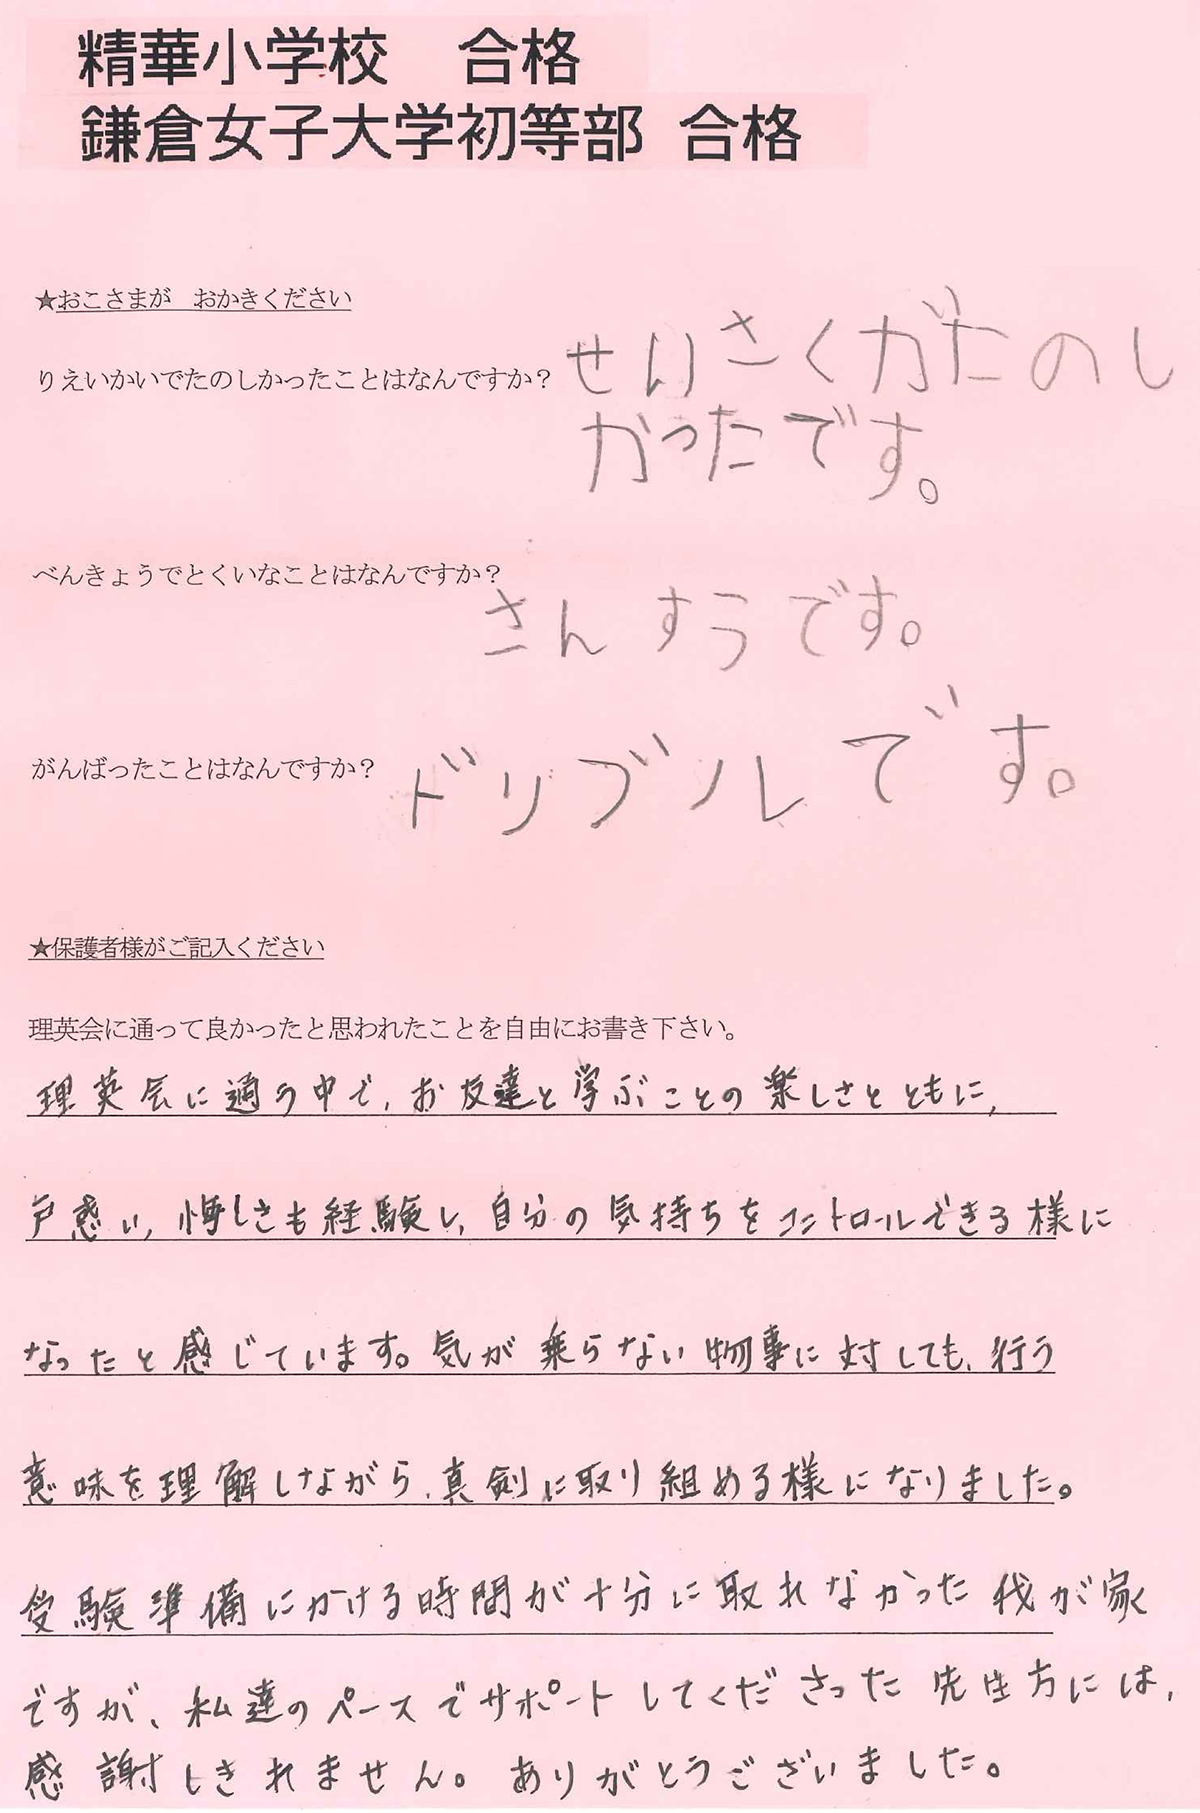 精華小学校　合格
鎌倉女子大学初等部 合格
★おこさまが　おかきください
りえいかいでたのしかったことはなんですか？
せいさくがたのし
かったです。
べんきょうでとくいなことはなんですか？
さんすうです。
がんばったことはなんですか？
ドリブルです。
★保護者様がご記入ください
理英会に通って良かったと思われたことを自由にお書き下さい。
理英会に通う中で、お友達と学ぶことの楽しさとともに、
戸惑い、悔しさも経験し、自分の気持ちをコントロールできる様に
なったと感じています。気が乗らない物事に対しても、行う
意味を理解しながら、真剣に取り組める様になりました。
受験準備にかける時間が十分に取れなかった我が家
ですが、私達のペースでサポートしてくださった先生方には、
感謝しきれません。ありがとうございました。